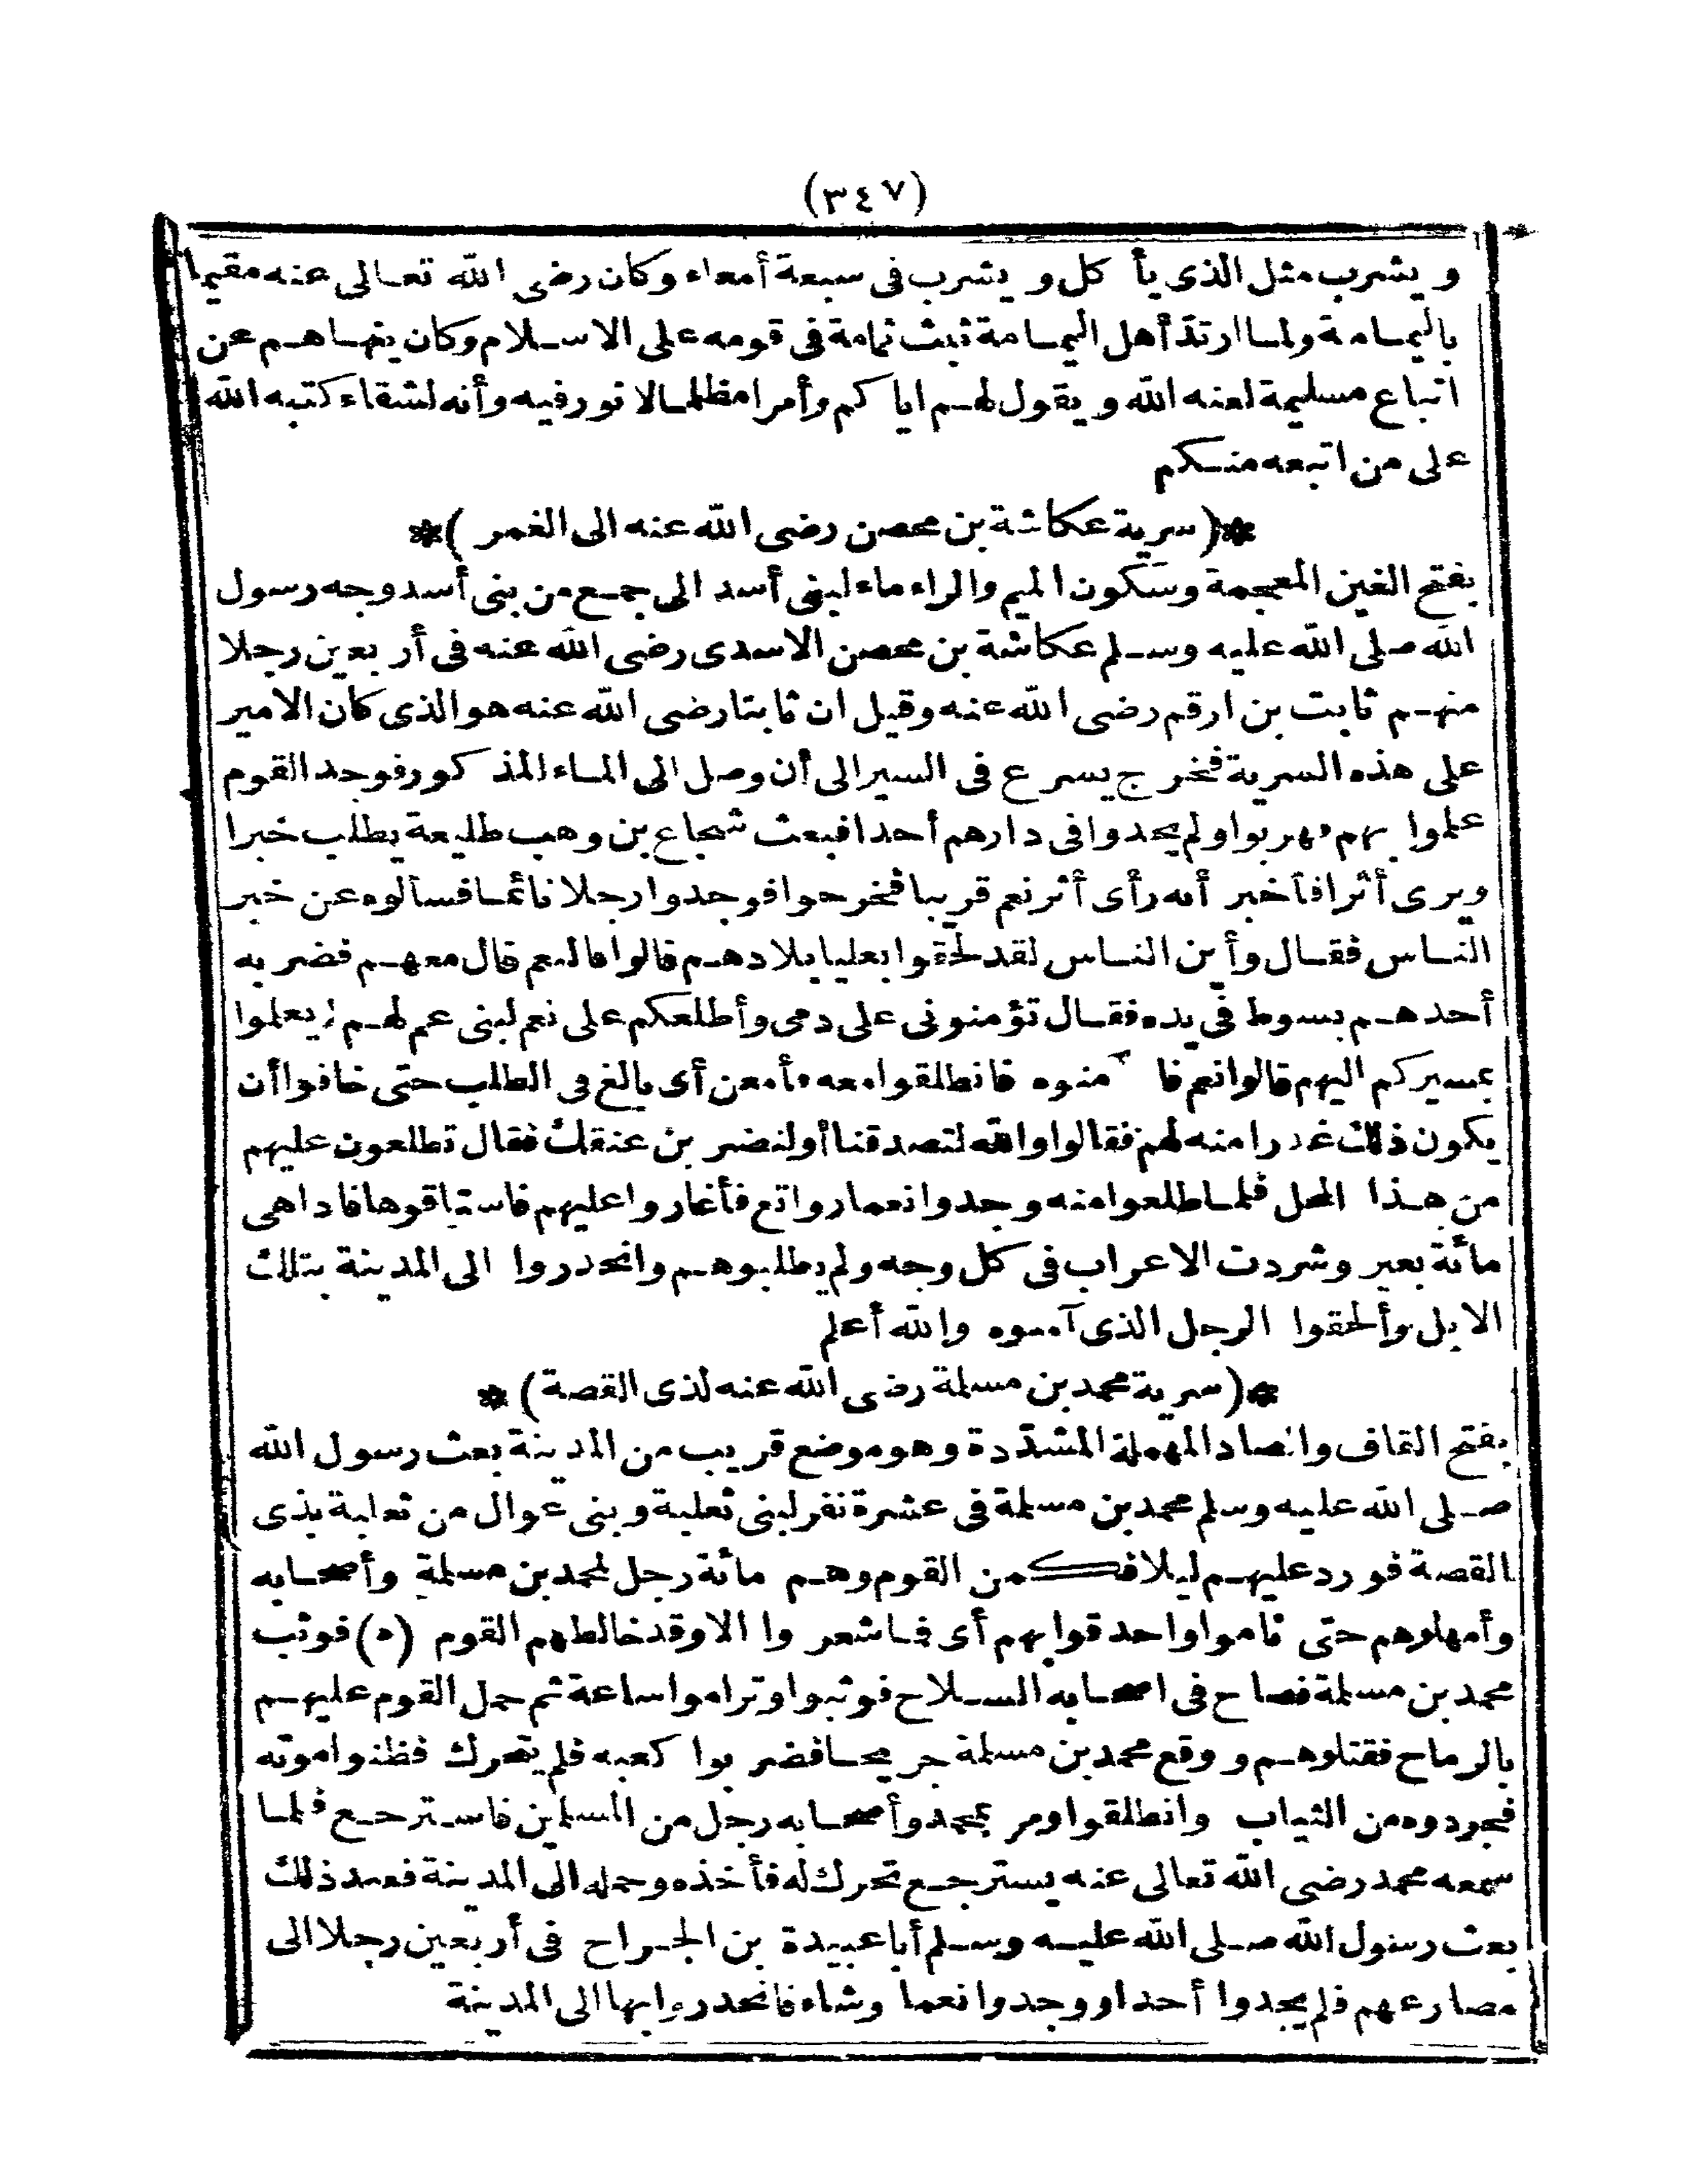 (٣٤٧)
ويشرب مثل الذى يأكل ويشرب فى سبعة أمعاء وكان رضى الله تعالى عنه مقيما
باليمامة ولما ارتدّ أهل اليمامة ثبت ثمامة فى قومه على الاسلام وكان ينهاهم عن
اتباع مسليمة لعنه الله ويقول لهم اياكم وأمرا مظلما لا نور فيه وأنه لشقاء كتبه الله
على من اتبعه منكم
*(سرية عكاشة بن محصن رضى الله عنه الى الغمر)*
بفتح الغين المعجمة وسكون الميم والراء ماء لبنى أسد الى جمع من بنى أسد وجه رسول
الله صلى الله عليه وسلم عكاشة بن محصن الاسدى رضى الله عنه فى أربعين رجلا
منهم ثابت بن ارقم رضى الله عنه وقيل ان ثابتا رضى الله عنه هو الذى كان الامير
على هذه السرية فخرج يسرع فى السير الى أن وصل الى الماء المذكور فوجد القوم
علموا بهم فهربوا ولم يجدوا فى دارهم أحدا فبعث شجاع بن وهب طليعة يطلب خبرا
ويرى أثرا فأخبر أنه رأى أثر نعم قريبا فخرجوا فوجدوا رجلا نائما فسألوه عن خبر
الناس فقال وأين الناس لقد لحقوا بعليا بلادهم قالوا فالنعم قال معهم فضربه
أحدهم بسوط فى يده فقال تؤمنونى على دمى وأطلعكم على نعم لبنى عم لهم لم يعلموا
بمسيركم اليهم قالوا نعم فآمنوه فانطلقوا معه فأمعن أى بالغ فى الطلب حتى خافوا أن
يكون ذلك غدرا منه لهم فقالوا والله لتصدقنا أو لنضربن عنقك فقال تطلعون عليهم
من هذا المحل فلما طلعوا منه وجدوا نعما رواتع فأغاروا عليهم فاستاقوها فاذا هى
مائة بعير وشردت الاعراب فى كل وجه ولم يطلبوهم وانحدروا الى المدينة بتلك
الابل وألحقوا الرجل الذى آمنوه والله أعلم
*(سرية محمد بن مسلمة رضى الله عنه لذى القصة)*
بفتح القاف والصاد المهملة المشدّدة وهو موضع قريب من المدينة بعث رسول الله
صلى الله عليه وسلم محمد بن مسلمة فى عشرة نفر لبنى ثعلبة وبنى عوال من ثعلبة بذى
القصة فورد عليهم ليلا فكمن القوم وهم مائة رجل لمحمد بن مسلمة وأصحابه
وأمهلوهم حتى ناموا واحدقوا بهم أى فما شعروا الا وقد خالطهم القوم (ه) فوثب
محمد بن مسلمة فصاح فى اصحابه السلاح فوثبوا وتراموا ساعة ثم حمل القوم عليهم
بالرماح فقتلوهم ووقع محمد بن مسلمة جريحا فضربوا كعبه فلم يتحرك فظنوا موته
فجردوه من الثياب وانطلقوا ومر بمحمد وأصحابه رجل من المسلمين فاسترجع فلما
سمعه محمد رضى الله تعالى عنه يسترجع تحرك له فأخذه وحمله الى المدينة فعند ذلك
بعث رسول الله صلى الله عليه وسلم أبا عبيدة بن الجراح فى أربعين رجلا الى
مصارعهم فلم يجدوا أحدا ووجدوا نعما وشاء فانحدروا بها الى المدينة